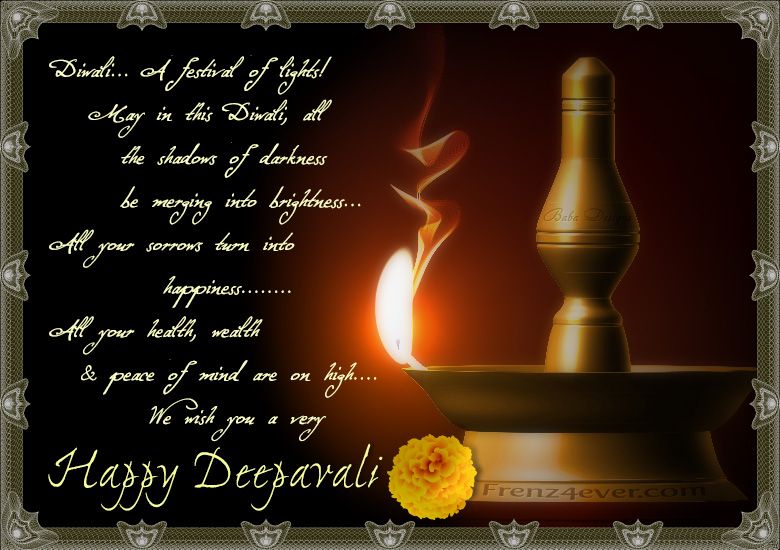 Diwali... A festival of lights!
May in this Diwali, all
the shadows of darkness
be merging into brightness...
All your sorrows turn into
happiness........
All your health, wealth
& peace of mind are on high....
We wish you a very
Happy Deepavali
Baba Designs
Frenz4ever.com